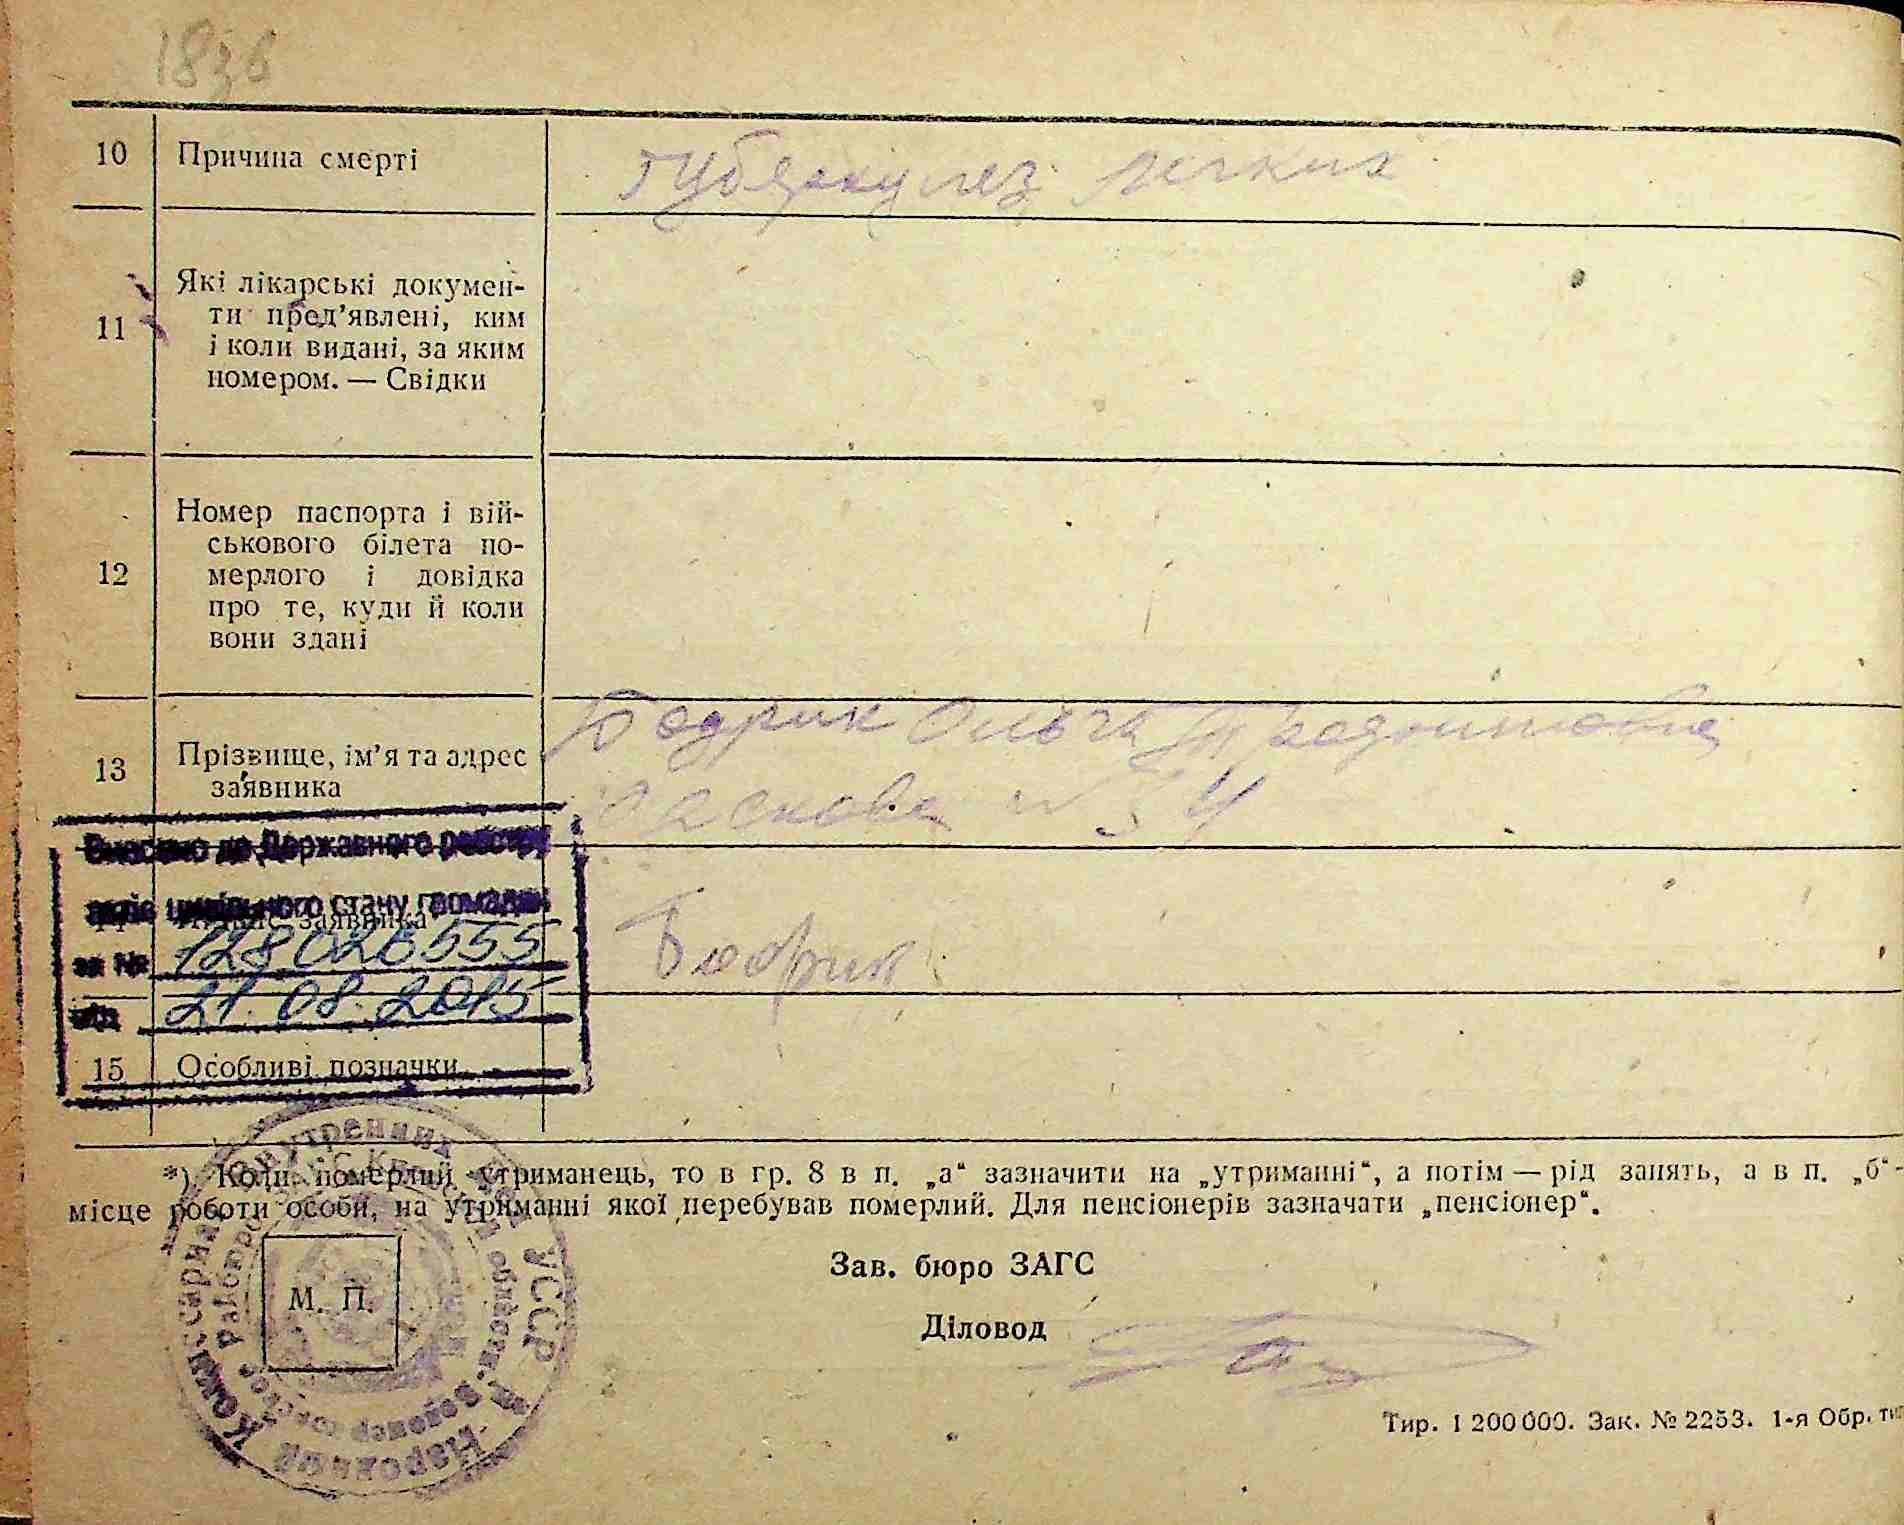 10 Причина смерті
Губеркулез легких
11 Які лікарські докумен-
ти пред’явлені, ким
і коли видані, за яким
номером. — Свідки
12 Номер паспорта і вій-
ськового білета по-
мерлого і довідка
про те, куди й коли
вони здані
13 Прізвище, ім’я та адрес
заявника
Бодрик Ольга
№ 54
Внесено до Державного реєстру
актів цивільного стану громадян
заявника
за № 128026555
від 21.08.2015
Бодрик
15 Особливі позначки
*) Коли померлий утриманець, то в гр. 8 в п. „а“ зазначити на „утриманні“, а потім — рід занять, а в п. „б“-
місце роботи особи, на утриманні якої перебував померлий. Для пенсіонерів зазначати „пенсіонер“.
Зав. бюро ЗАГС
М. П.
Діловод
Тир. 1 200 000. Зак. № 2253. 1-я Обр. тип
Народный Комиссариат Внутренних УССР